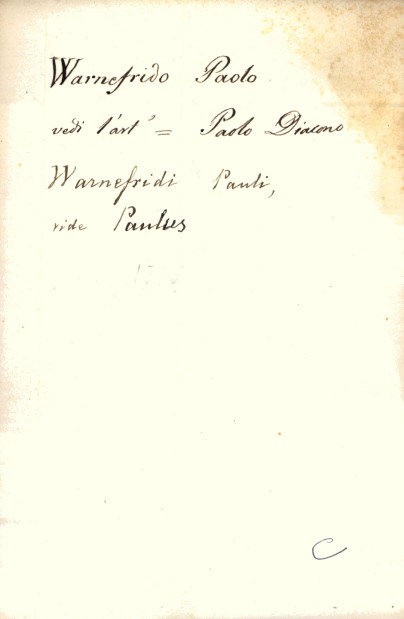 Warnefrido Paolo
vedi l'art° = Paolo Diacono
Warnefridi Pauli,
vide Paulus
C